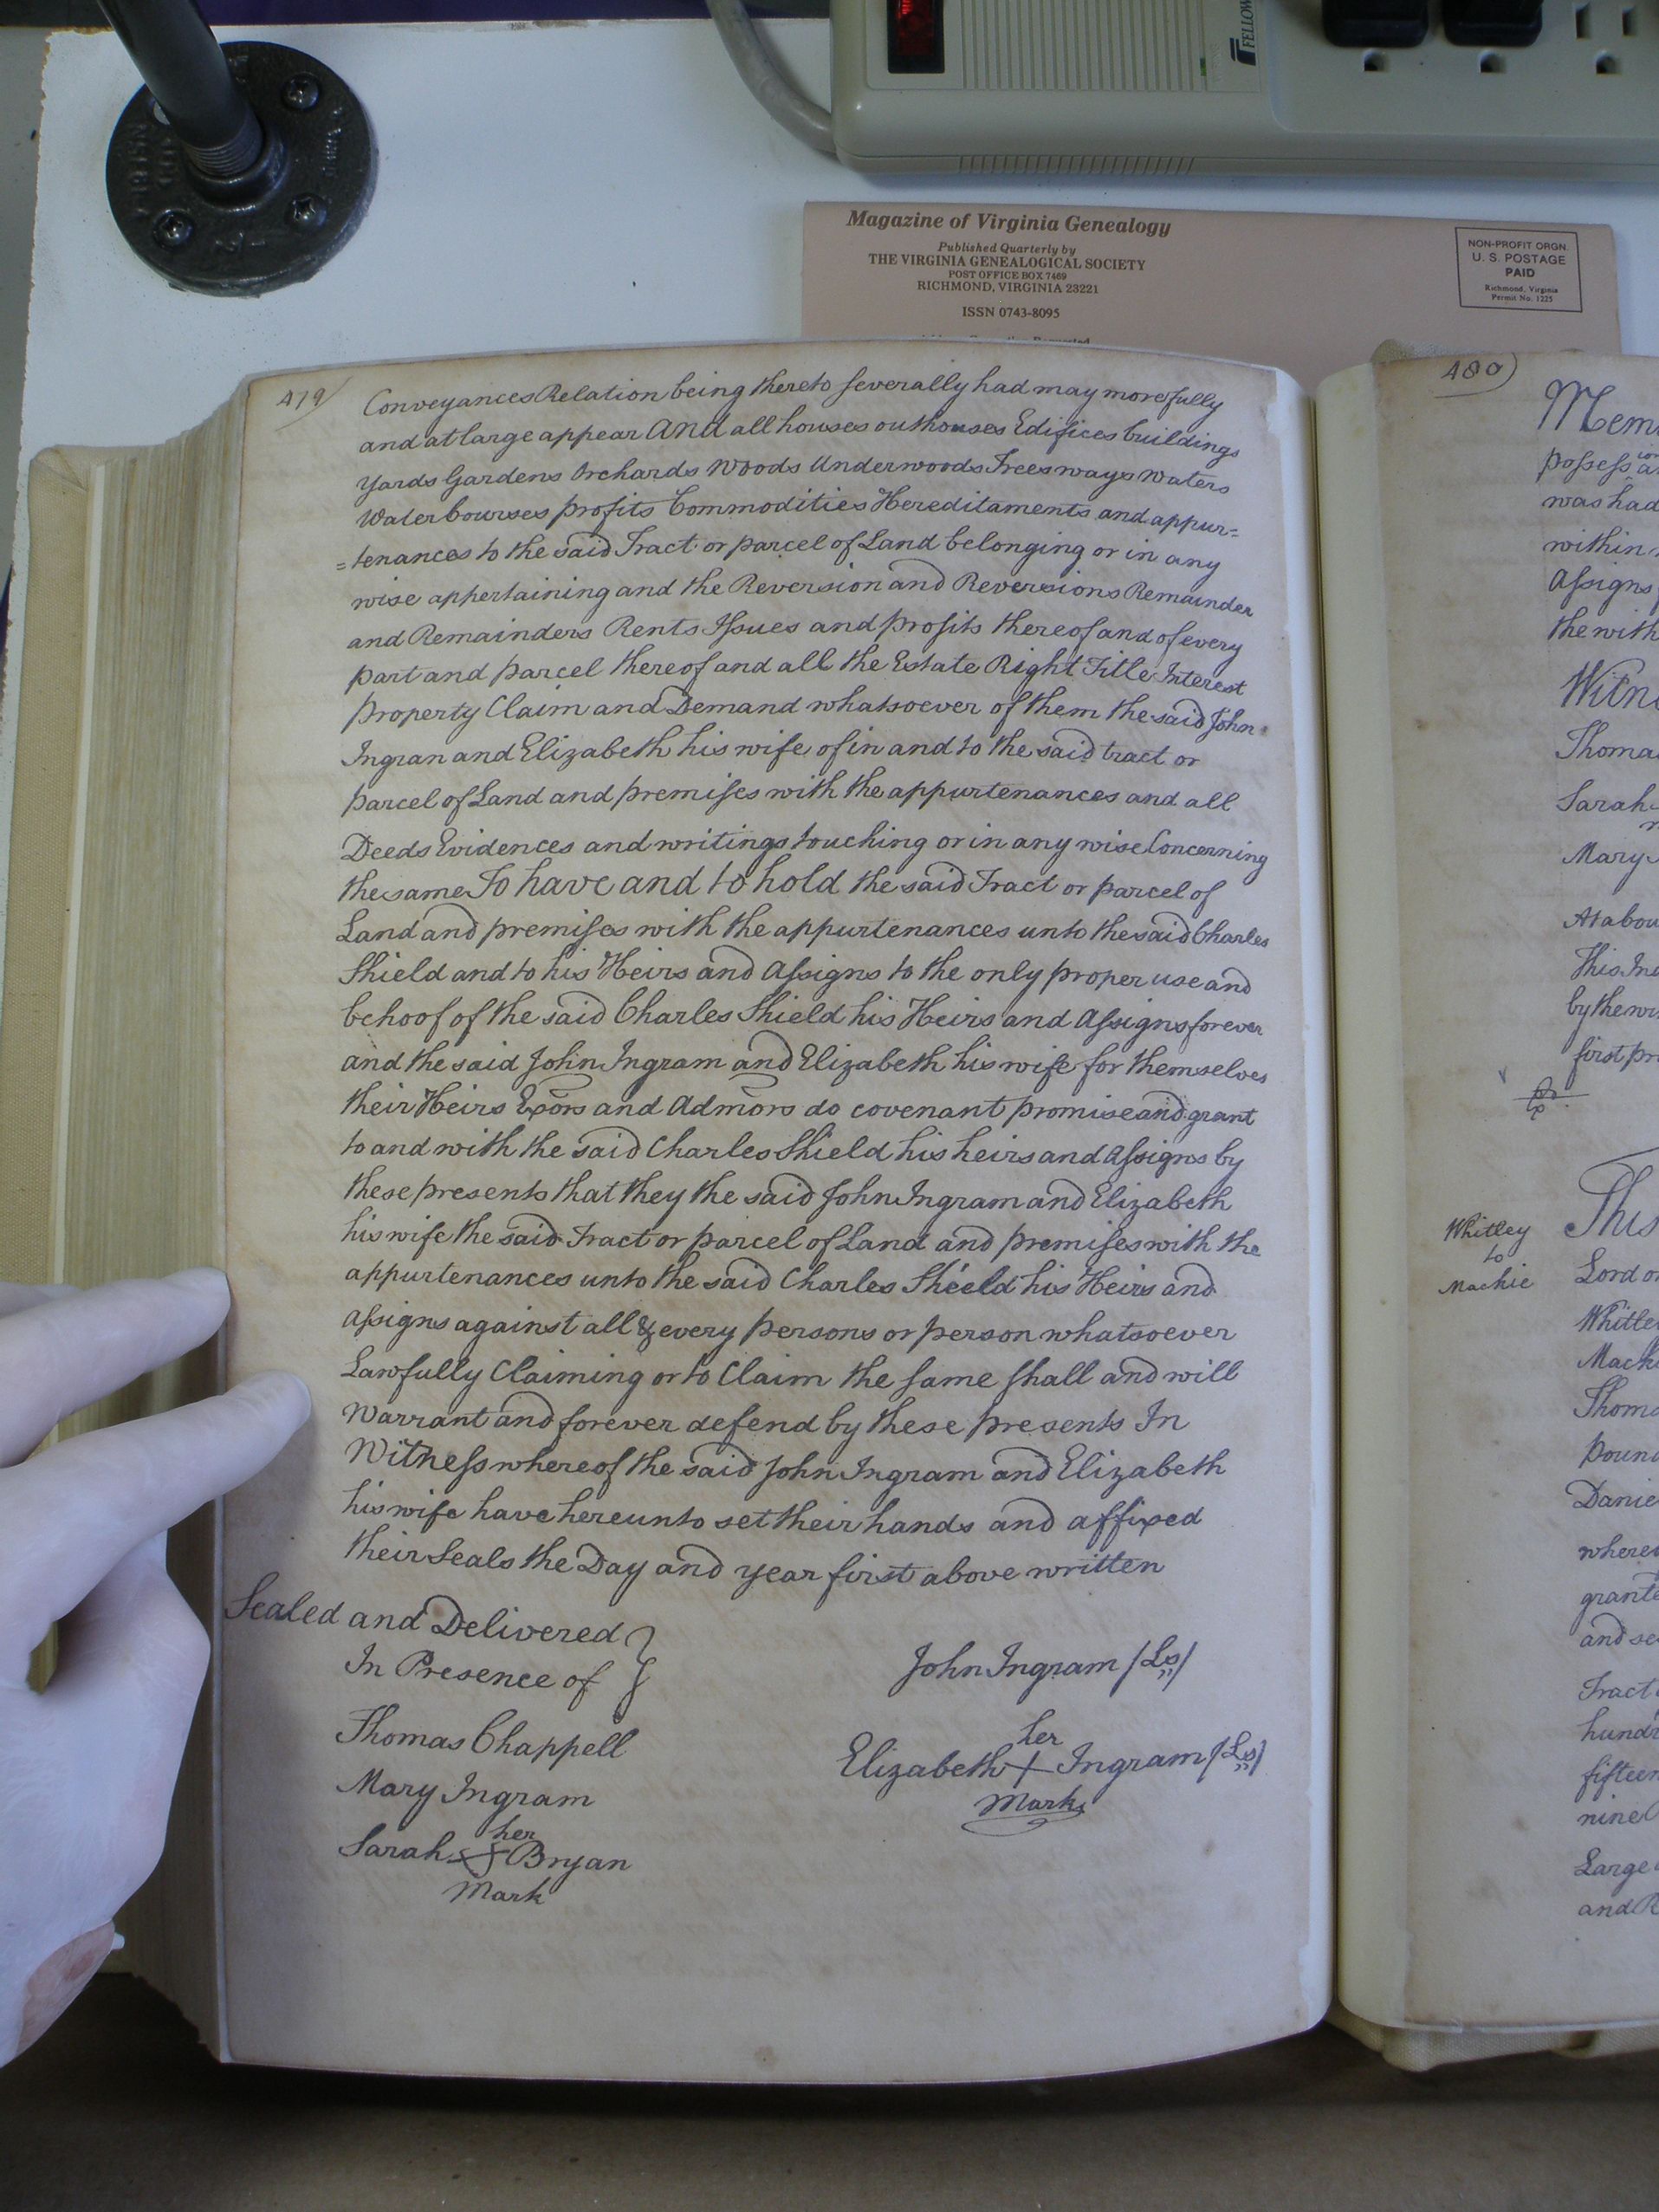 FELLOW
Magazine of Virginia Genealogy
Published Quarterly by
THE VIRGINIA GENEALOGICAL SOCIETY
POST OFFICE BOX 7469
RICHMOND, VIRGINIA 23221
ISSN 0743-8095
NON-PROFIT ORGN.
U. S. POSTAGE
PAID
Richmond, Virginia
Permit No. 1225
479
Conveyances Relation being thereto severally had may more fully
and at large appear And all houses outhouses Edifices buildings
Yards Gardens Orchards Woods Underwoods Trees ways Waters
Watercourses profits Commodities Hereditaments and appur=
=tenances to the said Tract or parcel of Land belonging or in any
wise appertaining and the Reversion and Reversions Remainder
and Remainders Rents Issues and profits thereof and of every
part and parcel thereof and all the Estate Right Title Interest
property Claim and Demand whatsoever of them the said John
Ingran and Elizabeth his wife of in and to the said tract or
parcel of Land and premises with the appurtenances and all
Deeds Evidences and writings touching or in any wise Concerning
the same To have and to hold the said Tract or parcel of
Land and premises with the appurtenances unto the said Charles
Shield and to his Heirs and Assigns to the only proper use and
behoof of the said Charles Shield his Heirs and Assigns forever
and the said John Ingram and Elizabeth his wife for themselves
their Heirs Exors and Admors do covenant promise and grant
to and with the said Charles Shield his heirs and Assigns by
these presents that they the said John Ingram and Elizabeth
his wife the said Tract or parcel of Land and premises with the
appurtenances unto the said Charles Sheeld his Heirs and
assigns against all & every persons or person whatsoever
Lawfully Claiming or to Claim the same shall and will
warrant and forever defend by these presents In
Witness whereof the said John Ingram and Elizabeth
his wife have hereunto set their hands and affixed
their Seals the Day and year first above written
Sealed and Delivered }
In Presence of }
John Ingram (Ls)
Thomas Chappell
her
Elizabeth + Ingram (Ls)
Mark
Mary Ingram
her
Sarah + Bryan
Mark
480
Mem
possess
was had
within
Assigns
the with
Witn
Thoma
Sarah
Mary
At a bou
This In
by the
first pr
This
Whitley
to
Mackie
Lord o
Whitle
Mack
Thoma
pound
Danie
where
grante
and se
Tract
hund
fifteen
nine
Large
and R